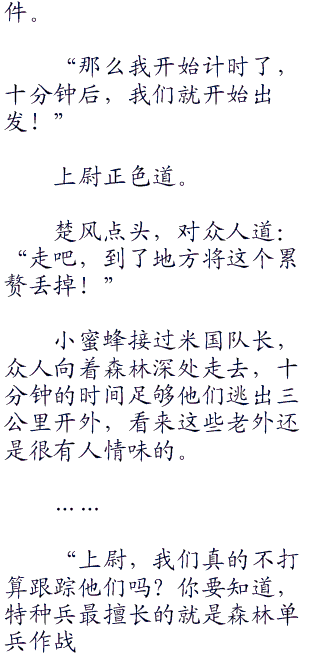 件。
“那么我开始计时了，
十分钟后，我们就开始出
发！”
上尉正色道。
楚风点头，对众人道：
“走吧，到了地方将这个累
赘丢掉！”
小蜜蜂接过米国队长，
众人向着森林深处走去，十
分钟的时间足够他们逃出三
公里开外，看来这些老外还
是很有人情味的。
……
“上尉，我们真的不打
算跟踪他们吗？你要知道，
特种兵最擅长的就是森林单
兵作战